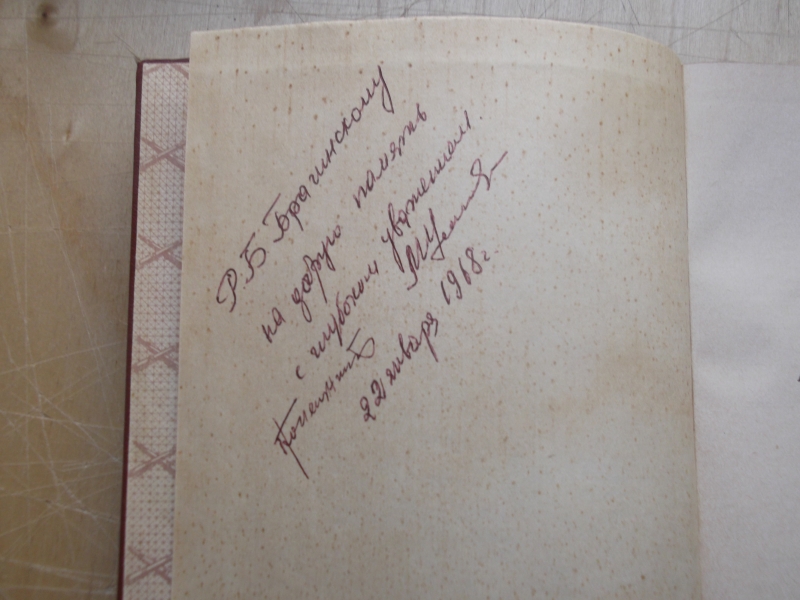 Р.Б. Брагинскому
на добрую память
с глубоким уважением.
22 января 1968 г.